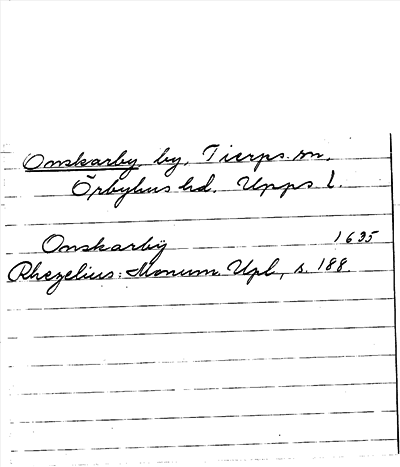 Onskarby, by, Tierps sn.
Örbyhus hd. Upps. l.
Onskarby 1635
Rhezelius: Monum. Upl., s. 188.